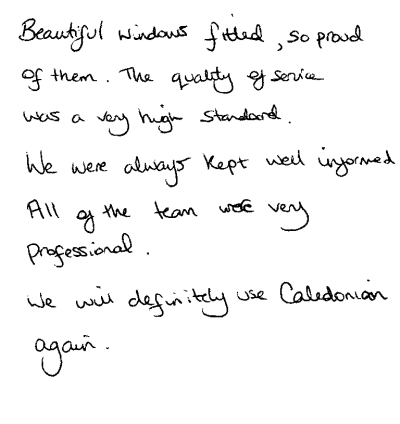 Beautiful windows fitted, so proud
of them. The quality of service
was a very high standard.
We were always kept well informed
All of the team were very
professional.
We will definitely use Caledonian
again.